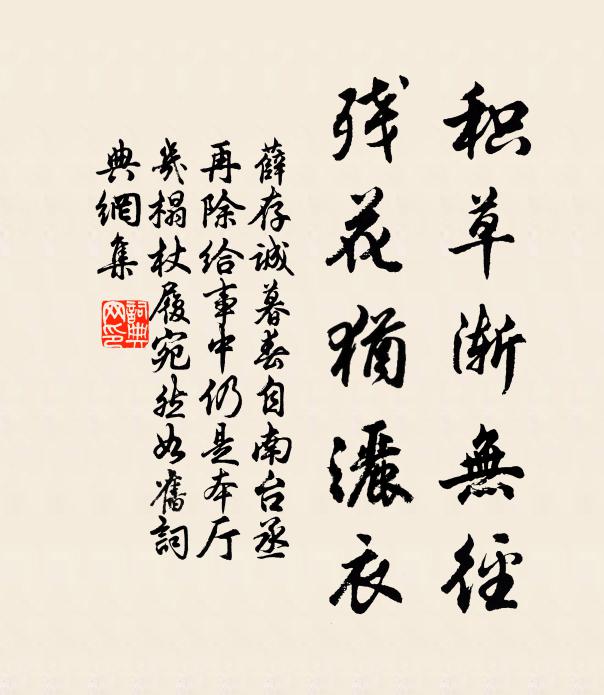 积草渐無徑
残花猶灑衣
薛存诚暮春自南台丞
再除给事中仍是本厅
几榻杖履宛然如舊詞
典網集
詞典網印